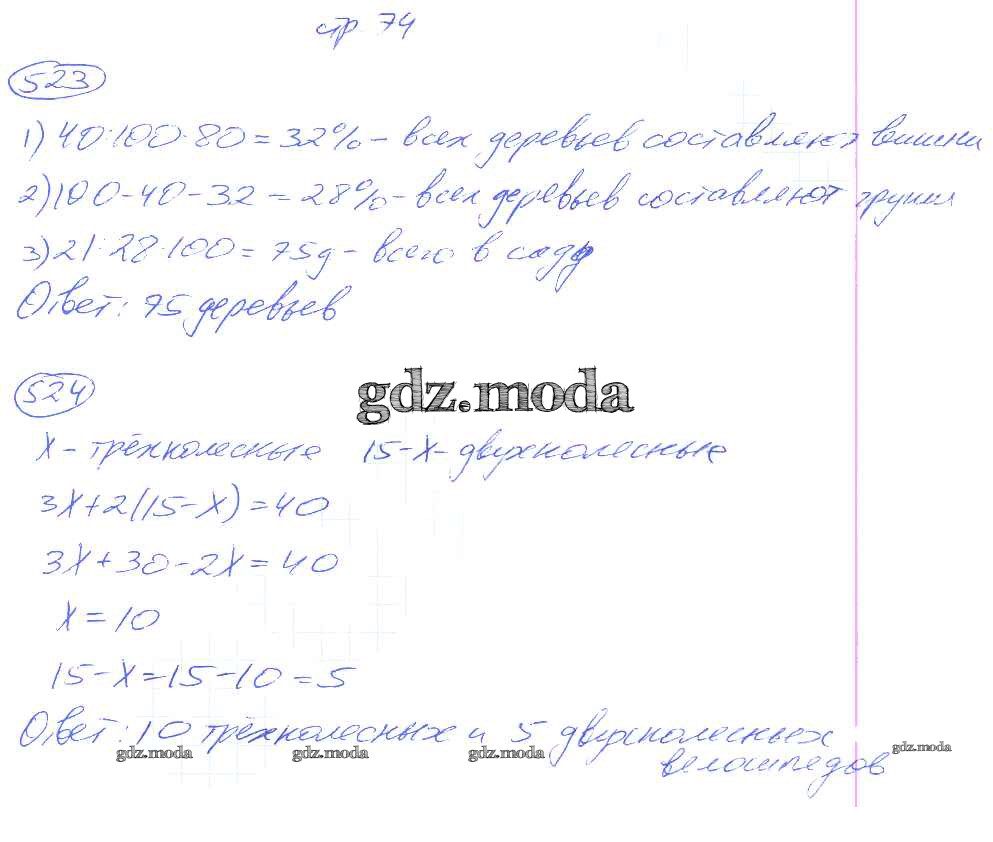 стр 74
523
1) 40:100·80=32% - всех деревьев составляют вишни
2) 100-40-32=28% - всех деревьев составляют груши
3) 21:28·100=75д - всего в саду
Ответ: 75 деревьев
524
gdz.moda
х - трёхколесные 15-х - двухколесные
3х+2(15-х)=40
3х+30-2х=40
х=10
15-х=15-10=5
Ответ: 10 трёхколесных и 5 двухколесных
gdz.moda gdz.moda gdz.moda gdz.moda
велосипедов